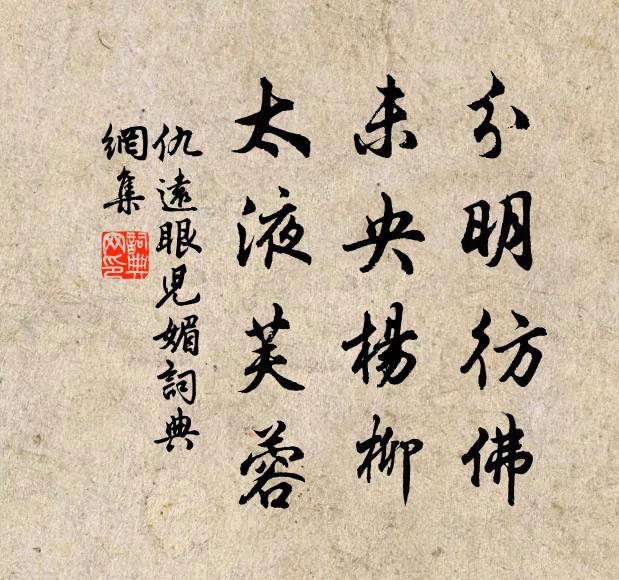 分明彷佛
未央楊柳
太液芙蓉
仇遠眼兒媚詞典
網集
詞典網印